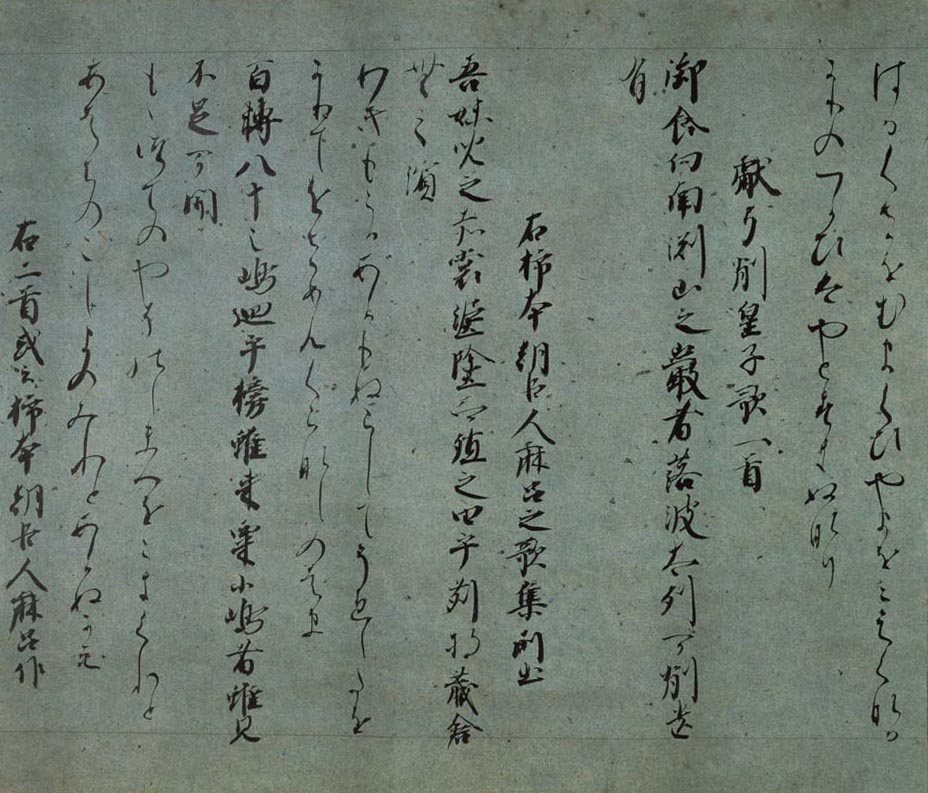 はるくさをむまくひやまをこえくなる
かりのつかひはやとすきぬなり
獻弓削皇子歌一首
御食向南渕山之巌者落波太列可削遺
有
右柿本朝臣人麻呂之歌集所出
吾妹兒之赤裳埿塗而殖之田乎苅将蔵倉
無之濱
わきもこかあかもぬらしてうゑしたを
かりてをさめんくらなしのはま
百轉八十之嶋廻乎榜雖来粟小嶋者雖見
不足可聞
もゝつてのやそのしまへをこきくれと
あはちのこしまみれとあかぬかも
右二首或云柿本朝臣人麻呂作